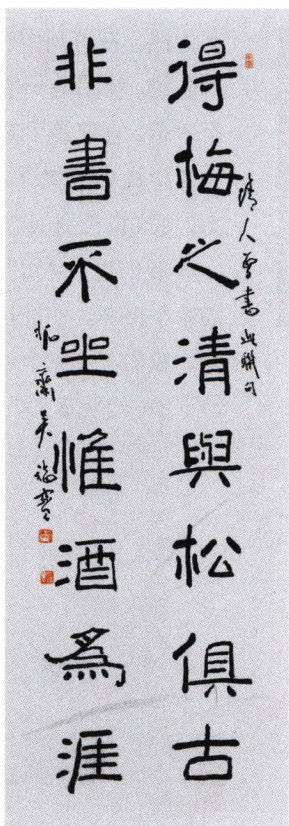 得梅之清與松俱古
清人曾書此聯句
非書不坐惟酒為涯
齋吳